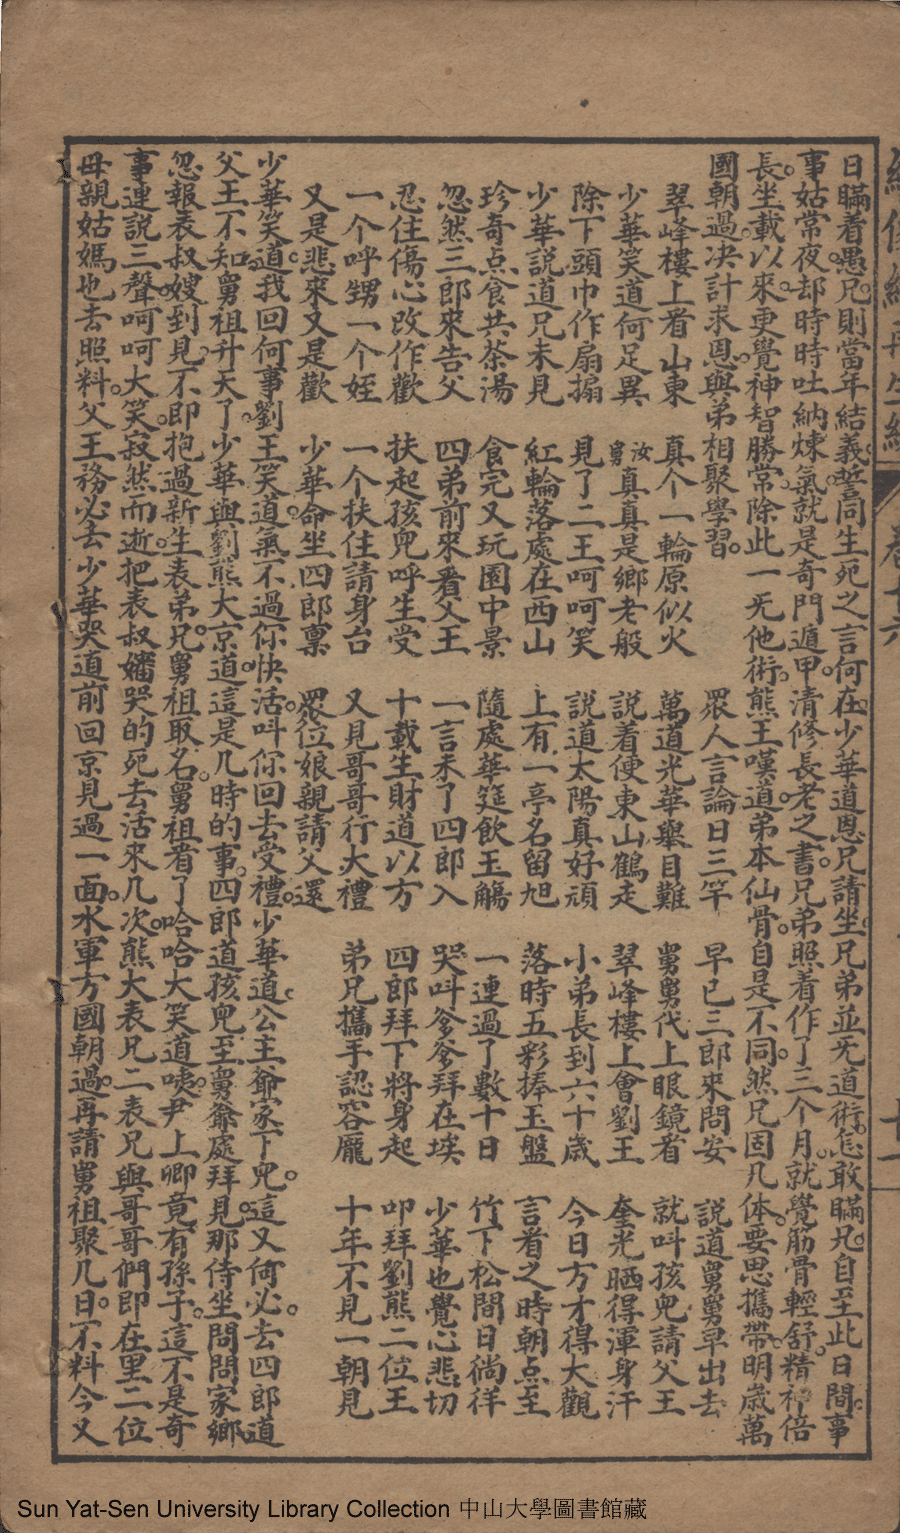 日瞞着愚兄。則當年結義。誓同生死之言何在。少華道恩兄請坐。兄弟並无道術。怎敢瞞兄。自至此日間。事
事姑常夜。却時時吐納煉氣。就是奇門遁甲。清修長老之書。兄弟照着作了三个月。就覺筋骨輕舒。精神倍
長。坐載以來。更覺神智勝常。除此一无他術。熊王嘆道。弟本仙骨。自是不同。然兄固凡体。要思攜帶。明歲萬
國朝過。決計求恩。與弟相聚學習。 眾人言論日三竿 早已三郎來問安 說道舅舅早出去
翠峰樓上看山東 真个一輪原似火 萬道光華舉目難 舅舅代上眼鏡看 就叫孩兒請父王
少華笑道何足異 汝舅真真是鄉老般 說着便東山鶴走 翠峰樓上會劉王 奎光晒得渾身汗
除下頭巾作扇搧 見了二王呵呵笑 說道太陽真好頑 小弟長到六十歲 今日方才得大觀
少華說道兄未見 紅輪落處在西山 上有一亭名留旭 落時五彩捧玉盤 言着之時朝点至
珍奇点食共茶湯 食完又玩園中景 隨處華筵飲玉觴 一連過了數十日 竹下松間日徜徉
忽然三郎來告父 四弟前來看父王 一言未了四郎入 哭叫爹爹拜在埃 少華也覺心悲切
忍住傷心改作歡 扶起孩兒呼生受 十載生財道以方 四郎拜下將身起 叩拜劉熊二位王
一个呼甥一个姪 一个扶住請身台 又見哥哥行大禮 弟兄攜手認容龐 十年不見一朝見
又是悲來又是歡 少華命坐四郎稟 眾位娘親請父還
少華笑道。我回何事。劉王笑道。氣不過你快活。叫你回去受禮。少華道。公主爺家下兒。這又何必。去四郎道
父王不知。舅祖升天了。少華與劉熊大京道。這是几時的事。四郎道。孩兒至舅爺處拜見。那侍坐問問家鄉
忽報表叔嫂到見。不即抱過新生表弟兄。舅祖取名。舅祖看了。哈哈大笑道。咦。尹上卿竟有孫子。這不是奇
事。連說三聲。呵呵大笑。寂然而逝。把表叔嬸哭的死去活來几次。熊大表兄二表兄與哥哥們即在里二位
母親姑媽也去照料。父王務必去。少華哭道。前回京見過一面。水軍方國朝過。再請舅祖聚几日。不料今又